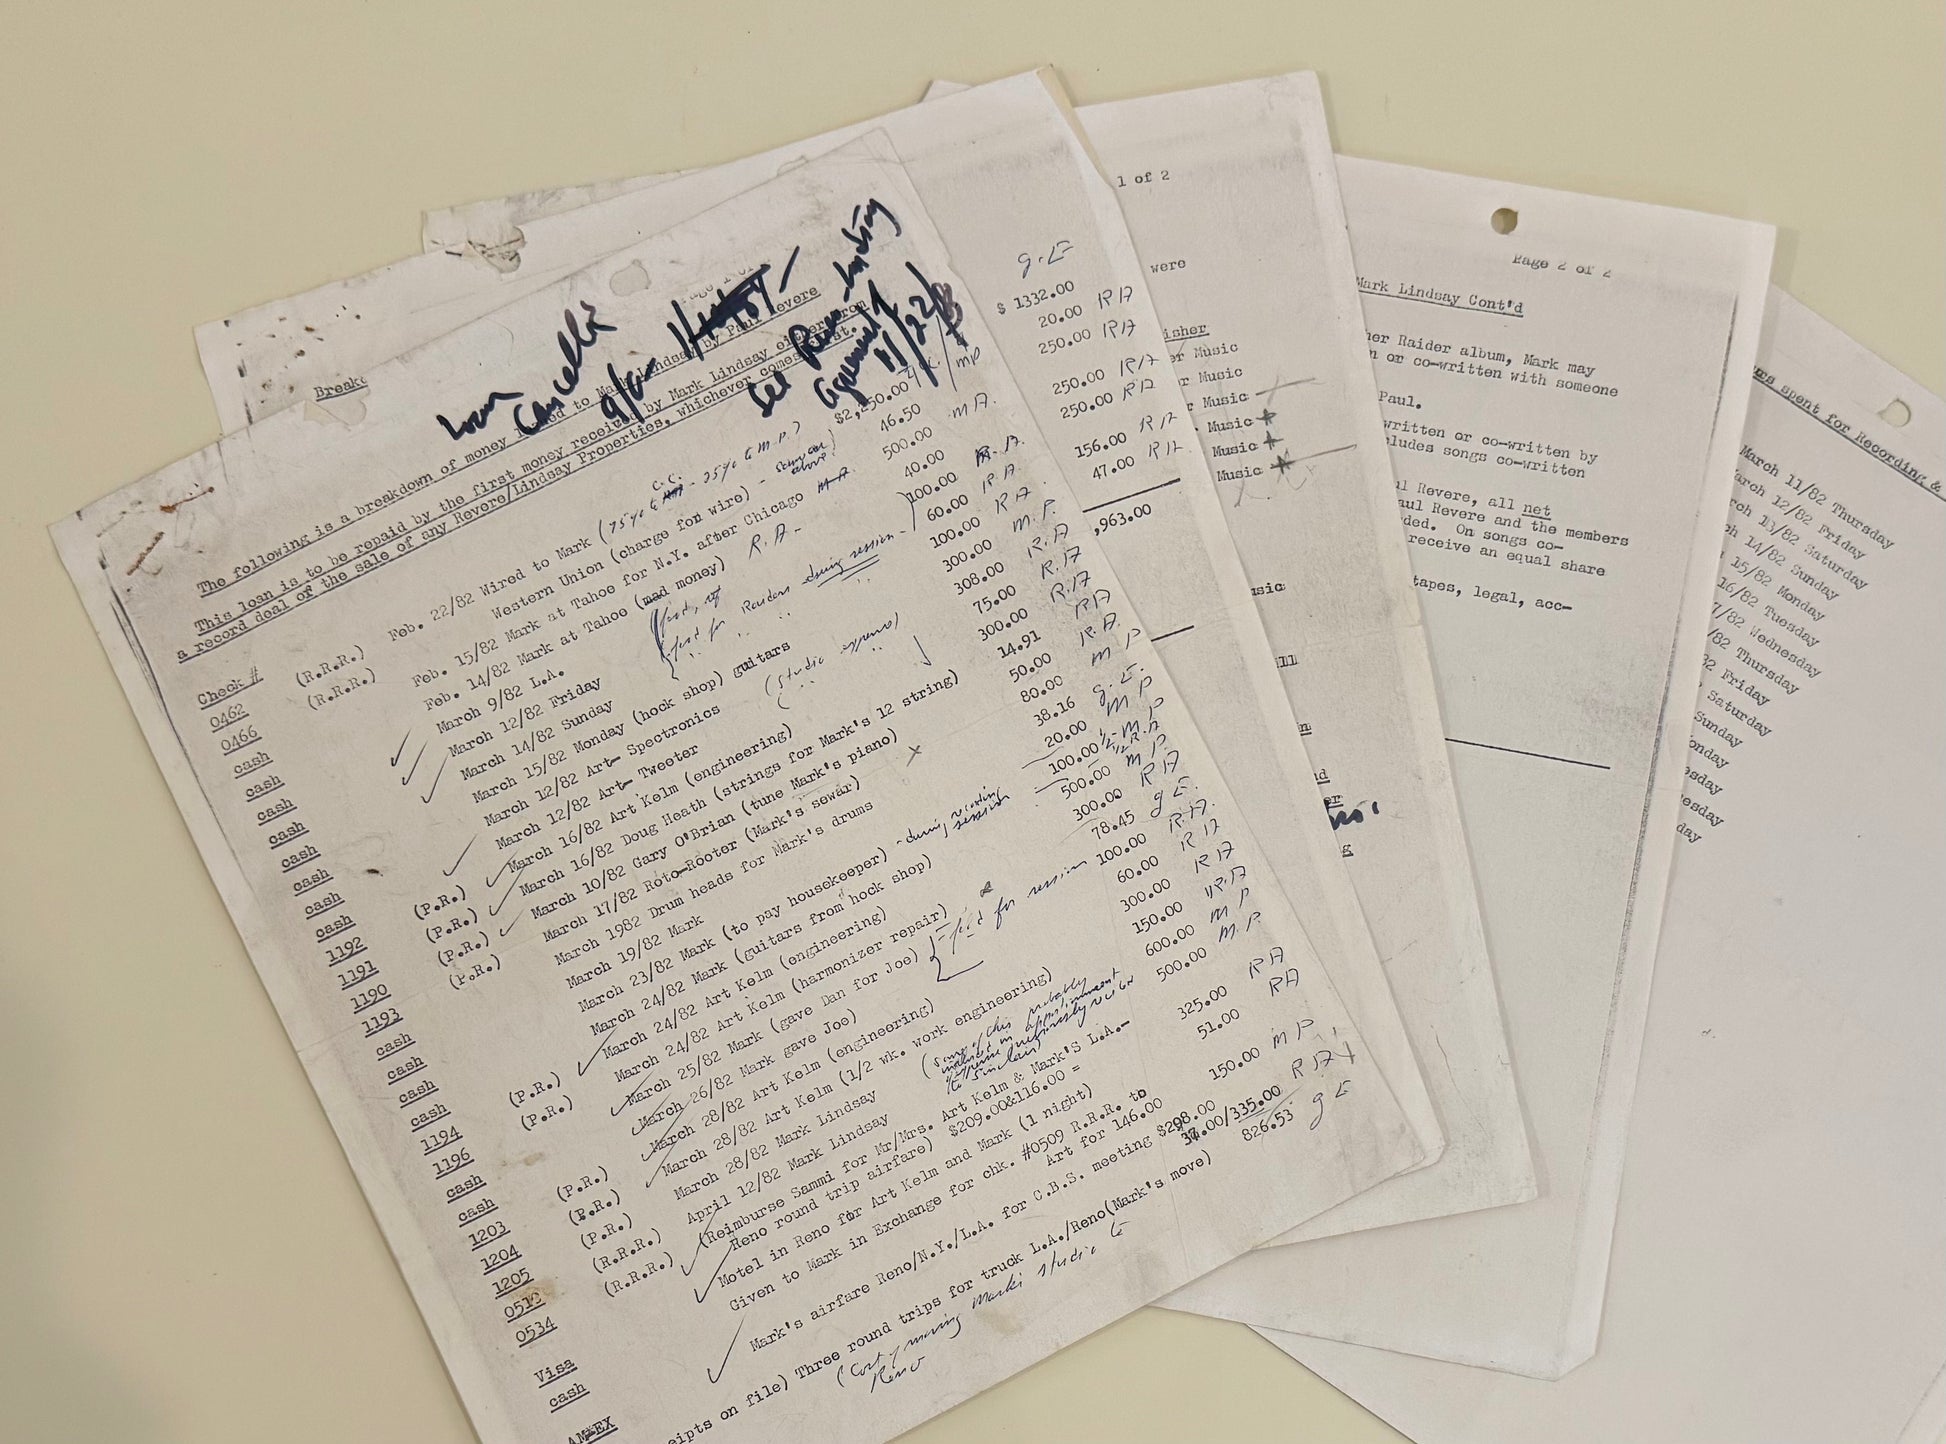 Loan
Cancelled
See Revere-Lindsay
agreement
11/22/83
The following is a breakdown of money loaned to Mark Lindsay by Paul Revere
This loan is to be repaid by the first money received by Mark Lindsay either from
a record deal of the sale of any Revere/Lindsay Properties, whichever comes first.
Check #
0462 (R.R.R.) Feb. 22/82 Wired to Mark (75% G - 25% G M.P.) $2,250.00
0466 (R.R.R.) Western Union (charge for wire) - same as above 46.50
cash Feb. 15/82 Mark at Tahoe for N.Y. after Chicago 500.00 M A.
cash Feb. 14/82 Mark at Tahoe (mad money) R.A. 40.00
cash March 9/82 L.A. 100.00 R.A.
cash March 12/82 Friday food for Raiders during session 60.00 R.A.
cash March 14/82 Sunday 100.00 R A
cash March 15/82 Monday (hock shop) guitars 300.00 M. P.
cash March 12/82 Art- Spectronics (studio expenses) 308.00 R.A
cash March 12/82 Art- Tweeter 75.00 R.A
1192 (P.R.) March 16/82 Art Kelm (engineering) 300.00 R.A
1191 (P.R.) March 16/82 Doug Heath (strings for Mark's 12 string) 14.91 RA
1190 (P.R.) March 10/82 Gary O'Brian (tune Mark's piano) 50.00 R.A.
1193 (P.R.) March 17/82 Roto-Rooter (Mark's sewar) 80.00 M P
cash March 1982 Drum heads for Mark's drums 38.16 g.E.
cash March 19/82 Mark 20.00 M P
cash March 23/82 Mark (to pay housekeeper) - during recording session 100.00 1/2 M P 1/2 R.A
cash March 24/82 Mark (guitars from hock shop) 500.00 M P
1194 (P.R.) March 24/82 Art Kelm (engineering) 300.00 RA
1196 (P.R.) March 24/82 Art Kelm (harmonizer repair) 78.45 g E.
cash March 25/82 Mark (gave Dan for Joe) food for session 100.00 R.A.
cash March 26/82 Mark gave Joe) 60.00 R A
1203 (P.R.) March 28/82 Art Kelm (engineering) 300.00 R A
1204 (P.R.) March 28/82 Art Kelm (1/2 wk. work engineering) 150.00 R.A
1205 (P.R.) March 28/82 Mark Lindsay 600.00 M P
0512 (R.R.R.) April 12/82 Mark Lindsay 500.00 M.P.
0534 (R.R.R.) (Reimburse Sammi for Mr/Mrs. Art Kelm & Mark'S L.A.-
Reno round trip airfare) $209.00&116.00 = 325.00 R A
Visa Motel in Reno for Art Kelm and Mark (1 night) 51.00 RA
cash Given to Mark in Exchange for chk. #0509 R.R.R. to
Art for 146.00 150.00 M P.
AM-EX Mark's airfare Reno/N.Y./L.A. for C.B.S. meeting $298.00
37.00/335.00 R A
eipts on file) Three round trips for truck L.A./Reno(Mark's move) 826.53 g E
(Cost of moving Mark's studio to
Reno
g.E
$ 1332.00
20.00 RA
250.00 RA
250.00 RA
250.00 RA
156.00 RA
47.00 RA
,963.00
1 of 2
were
isher
er Music
r Music
r Music
Music
Music
Music
usic
Page 2 of 2
Mark Lindsay Cont'd
her Raider album, Mark may
n or co-written with someone
Paul.
written or co-written by
cludes songs co-written
ul Revere, all net
aul Revere and the members
ded. On songs co-
receive an equal share
tapes, legal, acc-
urs spent for Recording &
March 11/82 Thursday
March 12/82 Friday
rch 13/82 Saturday
ch 14/82 Sunday
15/82 Monday
16/82 Tuesday
7/82 Wednesday
/82 Thursday
82 Friday
Saturday
Sunday
onday
esday
esday
day